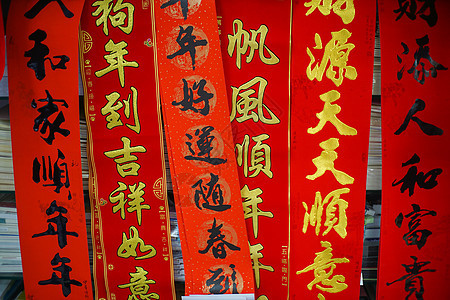 人和家順年年
狗年到吉祥如意
年好運随春到
帆風順年年
財源天天順意
人和富貴